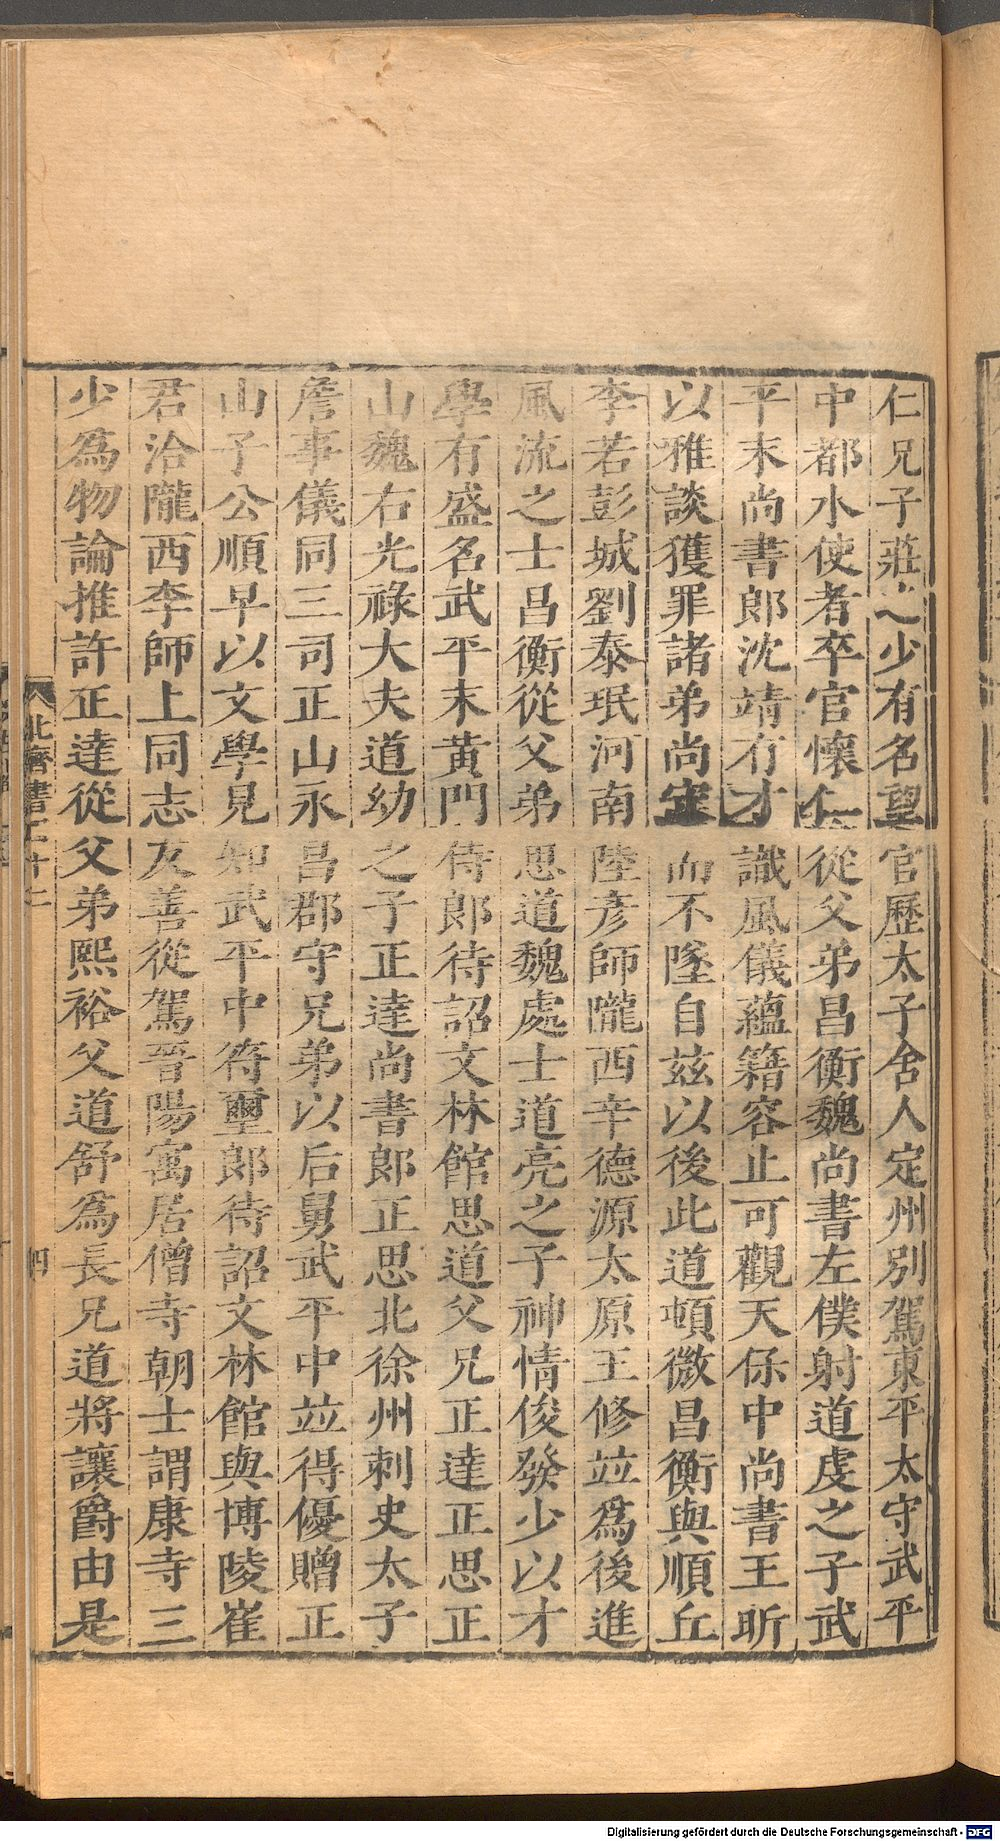 仁兄子莊之少有名望官歷太子舍人定州別駕東平太守武平
中都水使者卒官懷仁從父弟昌衡魏尚書左僕射道虔之子武
平末尚書郎沈靖有才識風儀蘊籍容止可觀天保中尚書王昕
以雅談獲罪諸弟尚守而不墜自茲以後此道頓微昌衡與順丘
李若彭城劉泰珉河南陸彥師隴西辛德源太原王修竝為後進
風流之士昌衡從父弟思道魏處士道亮之子神情俊發少以才
學有盛名武平末黃門侍郎待詔文林館思道父兄正達正思正
山魏右光祿大夫道幼之子正達尚書郎正思北徐州刺史太子
詹事儀同三司正山永昌郡守兄弟以后舅武平中竝得優贈正
山子公順早以文學見知武平中符璽郎待詔文林館與博陵崔
君洽隴西李師上同志友善從駕晉陽寓居僧寺朝士謂康寺三
少為物論推許正達從父弟熙裕父道舒為長兄道將讓爵由是
北齊書二十二
四
Digitalisierung gefördert durch die Deutsche Forschungsgemeinschaft - DFG